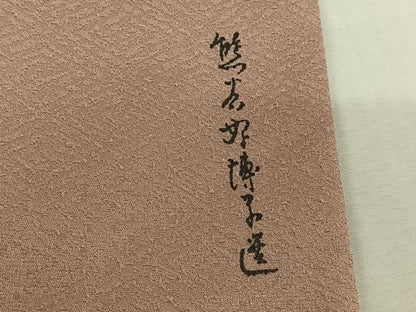 熊谷好博子選